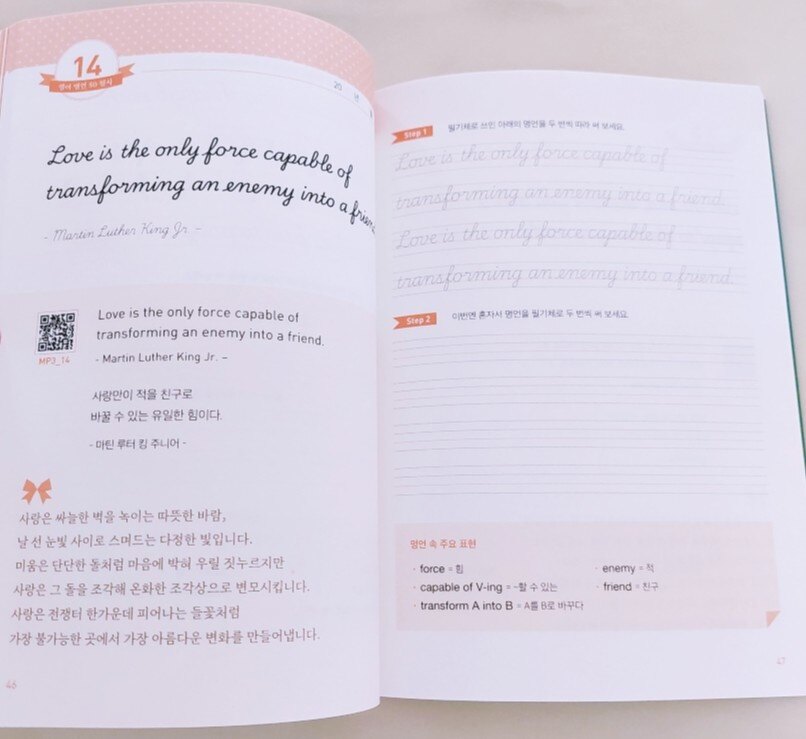 14
영어 명언 50 필사
20 년
Love is the only force capable of
transforming an enemy into a friend.
- Martin Luther King Jr. -
Love is the only force capable of
transforming an enemy into a friend.
- Martin Luther King Jr. -
MP3_14
사랑만이 적을 친구로
바꿀 수 있는 유일한 힘이다.
- 마틴 루터 킹 주니어 -
사랑은 싸늘한 벽을 녹이는 따뜻한 바람,
날 선 눈빛 사이로 스며드는 다정한 빛입니다.
미움은 단단한 돌처럼 마음에 박혀 우릴 짓누르지만
사랑은 그 돌을 조각해 온화한 조각상으로 변모시킵니다.
사랑은 전쟁터 한가운데 피어나는 들꽃처럼
가장 불가능한 곳에서 가장 아름다운 변화를 만들어냅니다.
46
Step 1 필기체로 쓰인 아래의 명언을 두 번씩 따라 써 보세요.
Love is the only force capable of
transforming an enemy into a friend.
Love is the only force capable of
transforming an enemy into a friend.
Step 2 이번엔 혼자서 명언을 필기체로 두 번씩 써 보세요.
명언 속 주요 표현
· force = 힘 · enemy = 적
· capable of V-ing = ~할 수 있는 · friend = 친구
· transform A into B = A를 B로 바꾸다
47